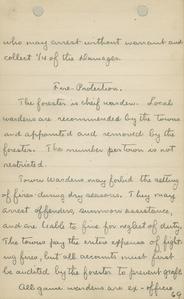 who may arrest without warrant and
collect 1/4 of the damages.
Fire-Protection.
The forester is cheif warden. Local
wardens are recommended by the towns
and appointed and removed by the
forester. The number per town is not
restricted.
Town Wardens may forbid the setting
of fires during dry seasons. They may
arrest offenders, summon assistance,
and are liable to fine for neglect of duty.
The towns pay the entire expense of fight-
ing fires, but all accounts must first
be audited by the forester to prevent graft.
All game wardens are ex-officio